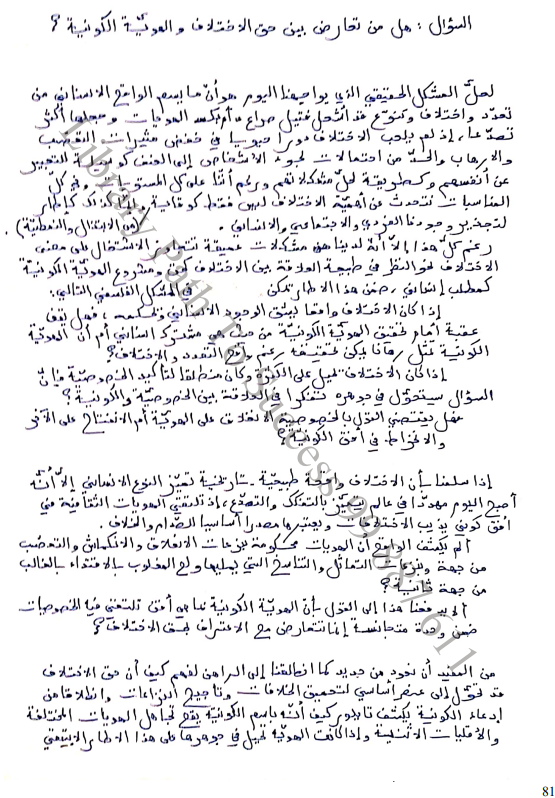 السؤال : هل من تعارض بين حق الاختلاف والهويّة الكونيّة ؟
لعلّ المشكل الحقيقي الذي يواجهنا اليوم هو أنّ ما يسم الواقع الإنساني من
تعدّد واختلاف وتنوّع قد أشعل فتيل صراع وأربك الهويات وجعلها أكثر
تصدّعا، إذ لم يلعب الاختلاف دورا حيويا في خفض مثيرات التعصّب
والإرهاب والحدّ من احتمالات لجوء الأشخاص إلى العنف كوسيلة للتعبير
عن أنفسهم وكطريقة لحلّ مشكلاتهم ورغم أنّنا على كل المستويات وفي كل
المناسبات نتحدث عن أهميّة الاختلاف ليس فقط كوقاية وإنّما كذلك كإطار
لتجذير وجودنا الفردي والاجتماعي والإنساني . (في الامتثال والنمطية)
رغم كلّ هذا إلاّ أنّه لدينا من مشكلات عميقة تتجاوز الاشتغال على معنى
الاختلاف نحو النظر في طبيعة العلاقة بين الاختلاف كحق ومشروع الهويّة الكونيّة
كمطلب إنساني . ضمن هذا الإطار يمكن في المشكل الفلسفي التالي:
إذا كان الاختلاف واقعا يبثق الوجود الإنساني ويحكمه، فهل يقف
عقبة أمام تحقق الهويّة الكونيّة من حيث هي مشترك إنساني أم أن الهويّة
الكونيّة تمثّل رهانا يمكن تحقيقه رغم واقع التعدد والاختلاف؟
إذا كان الاختلاف يحيل على الكثرة وكان منطلقا لتأكيد الخصوصيّة فإنّ
السؤال سيتحوّل في جوهره تفكّرا في العلاقة بين الخصوصيّة والكونيّة؟
فهل يقتضي القول بالخصوصيّة الانغلاق على الهويّة أم الانفتاح على الآخر
والانخراط في أفق الكونيّة؟
إذا سلمنا بأن الاختلاف واقعة طبيعيّة - تاريخية تميّز النوع الإنساني إلاّ أنّه
أصبح اليوم مهدّدا في عالم يتميّز بالتفكّك والتصدّع، إذ تلتقي الهويات الثقافيّة في
أفق كوني يذيب الاختلافات ويعتبرها مصدرا أساسيا للصّدام والخلاف.
ألم يكشف الواقع أن الهويات محكومة بنزعات الانغلاق والانكماش والتعصّب
من جهة ونزعات التماثل والتناسخ التي يمليها ولع المغلوب بالاقتداء بالغالب
من جهة ثانية؟
ألا يدفعنا هذا إلى القول بأن الهويّة الكونيّة بما هي أفق تلتقي فيه الخصوصيات
ضمن وحدة متجانسة إنما تتعارض مع الاعتراف بحق الاختلاف؟
من المفيد أن نعود من جديد كما انطلقنا إلى الراهن لفهم كيف أن حق الاختلاف
قد تحوّل إلى عنصر أساسي لتعميق الخلافات وتأجيج النزاعات وانطلاقا من
إدعاء الكونية يكشف تايلور كيف أنّه باسم الكونيّة يقع تجاهل الهويات المختلفة
والأقليات الإثنية وإذا كانت الهويّة تحيل في جوهرها على هذا الإطار الإيتيقي
Library Path To Success 99 887 611
81